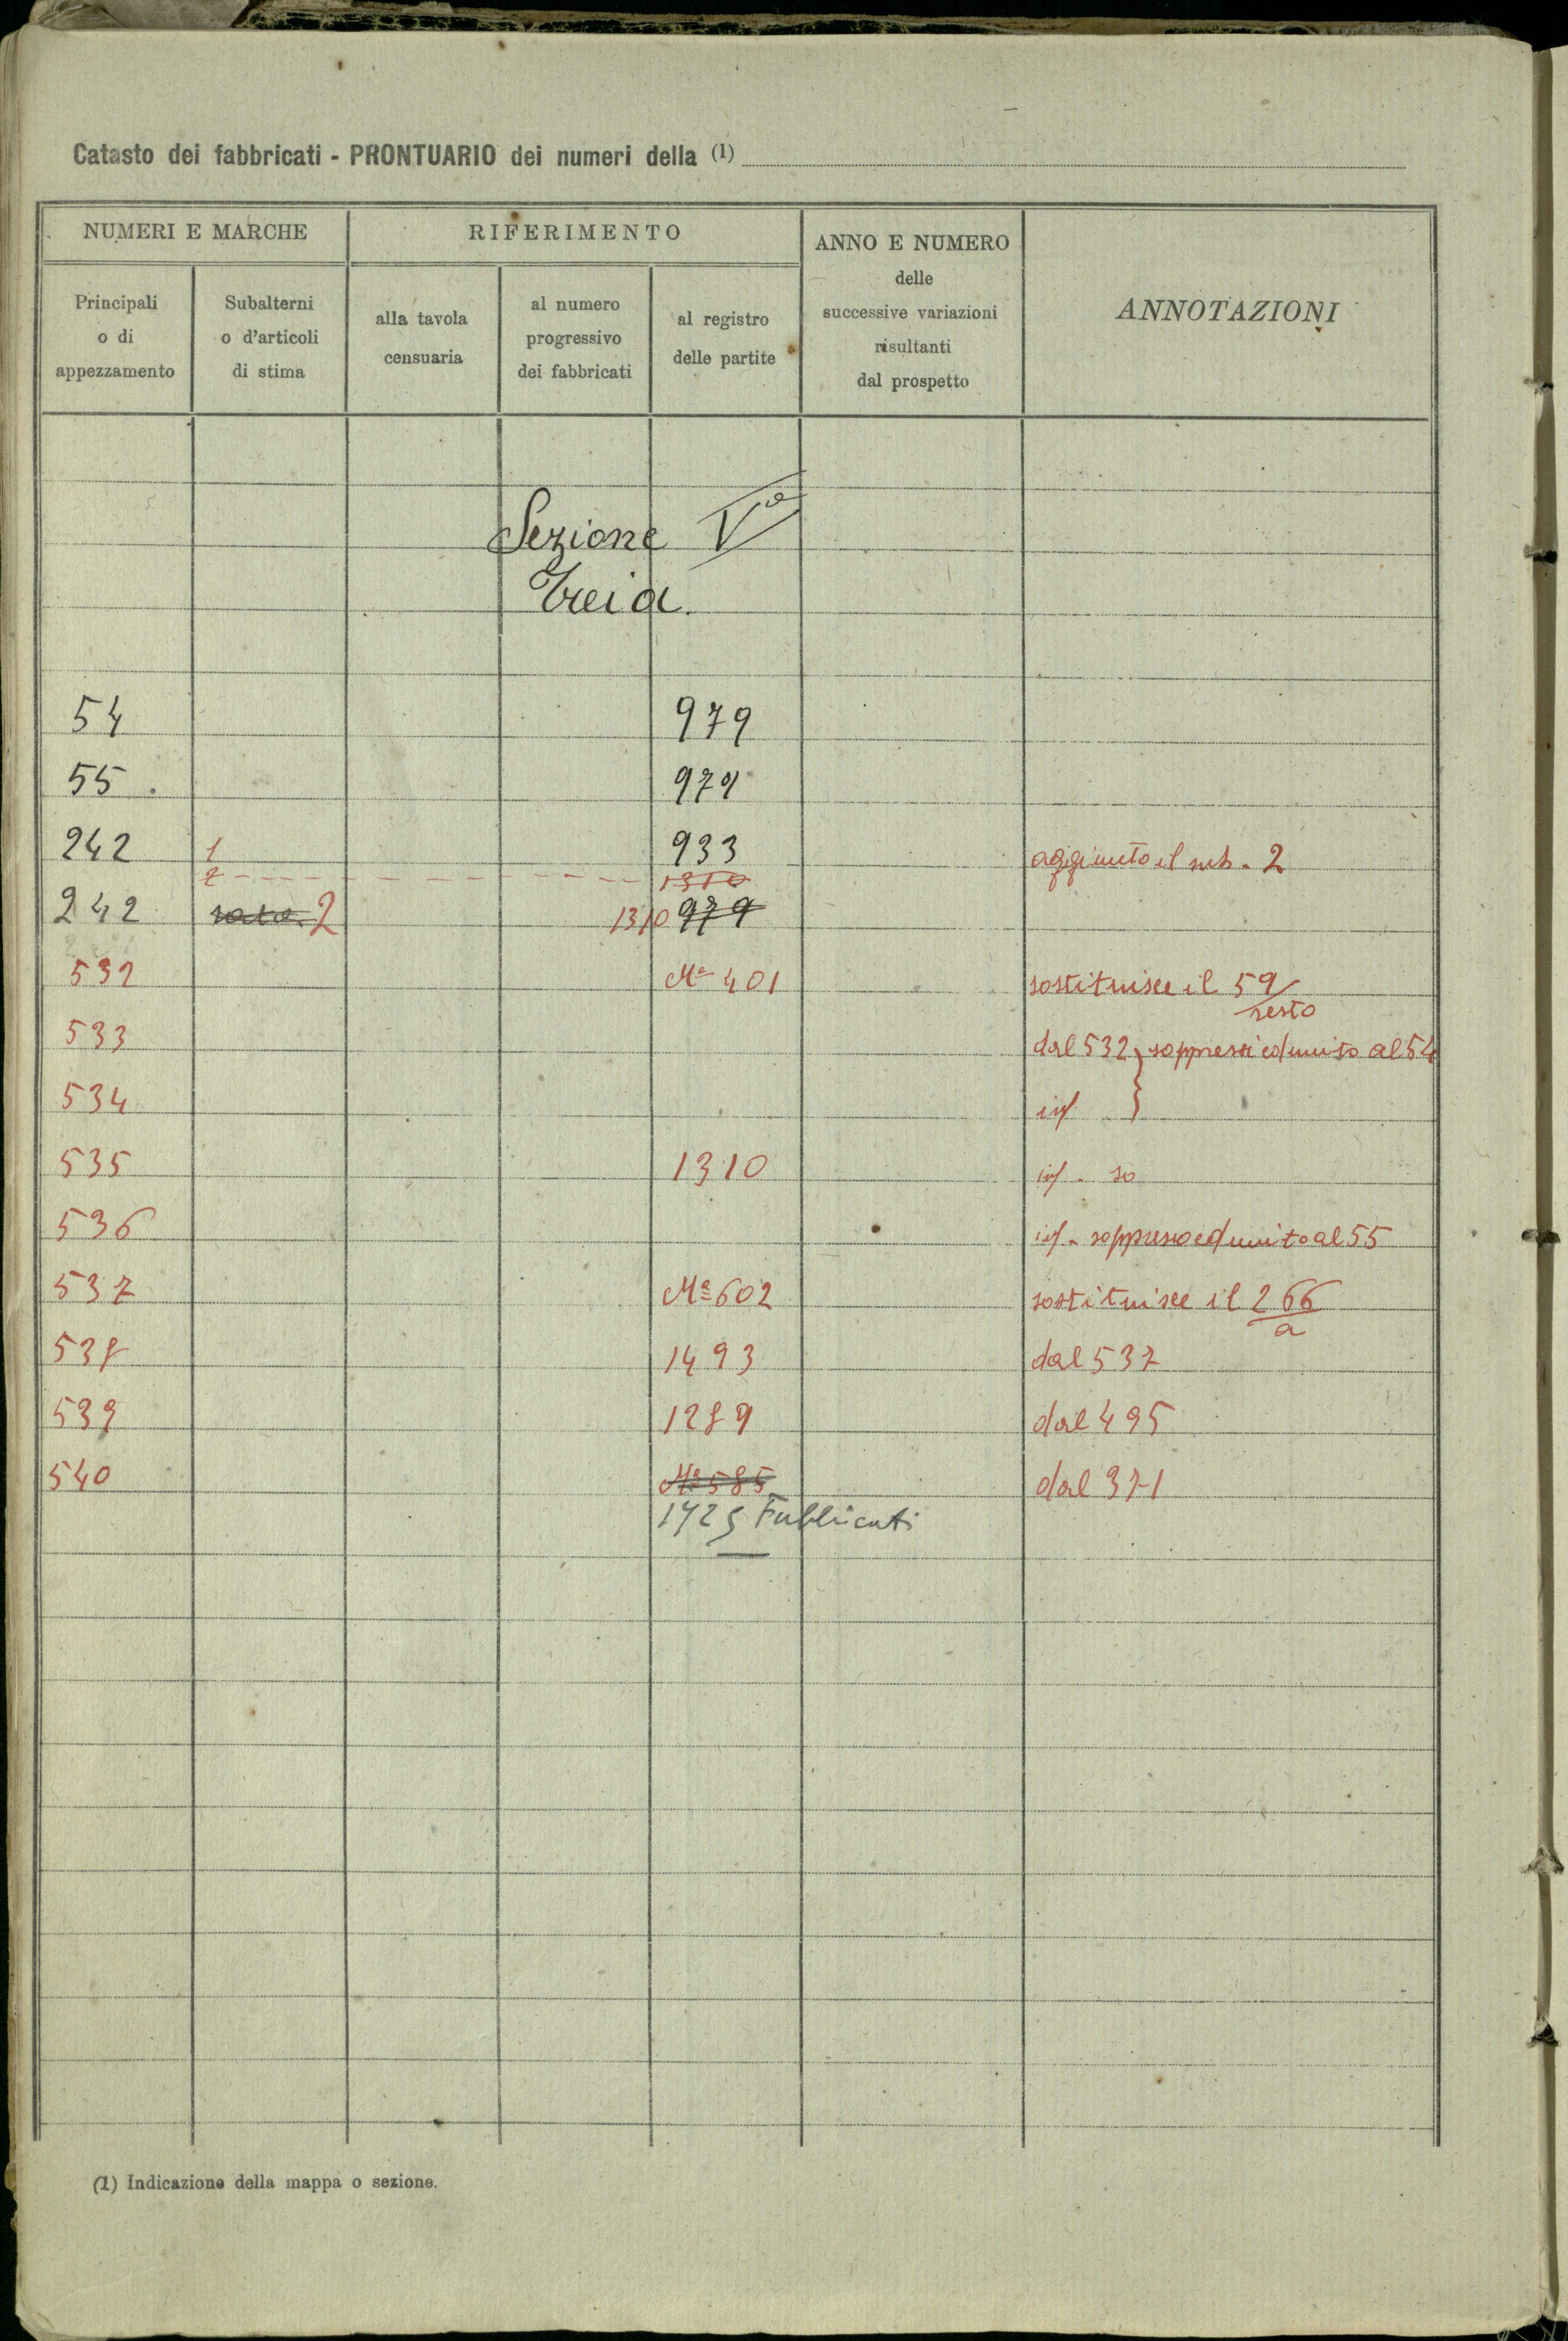 Catasto dei fabbricati - PRONTUARIO dei numeri della (1)
NUMERI E MARCHE
RIFERIMENTO
ANNO E NUMERO
delle
successive variazioni
risultanti
dal prospetto
ANNOTAZIONI
Principali
o di
appezzamento
Subalterni
o d'articoli
di stima
alla tavola
censuaria
al numero
progressivo
dei fabbricati
al registro
delle partite
Sezione Va
Treia.
54 979
55 979
242 1 933 aggiunto il sub. 2
2 1310
242 2 1310 979
532 Ma 401 sostituisce il 59/
resto
533 dal 532 soppressi ed unito al 54
534 id }
535 1310 id.
536 id. soppresso ed unito al 55
537 Ma 602 sostituisce il 266
a
538 1493 dal 537
539 1289 dal 495
540 Ma 585 dal 371
Fabbricati
(1) Indicazione della mappa o sezione.